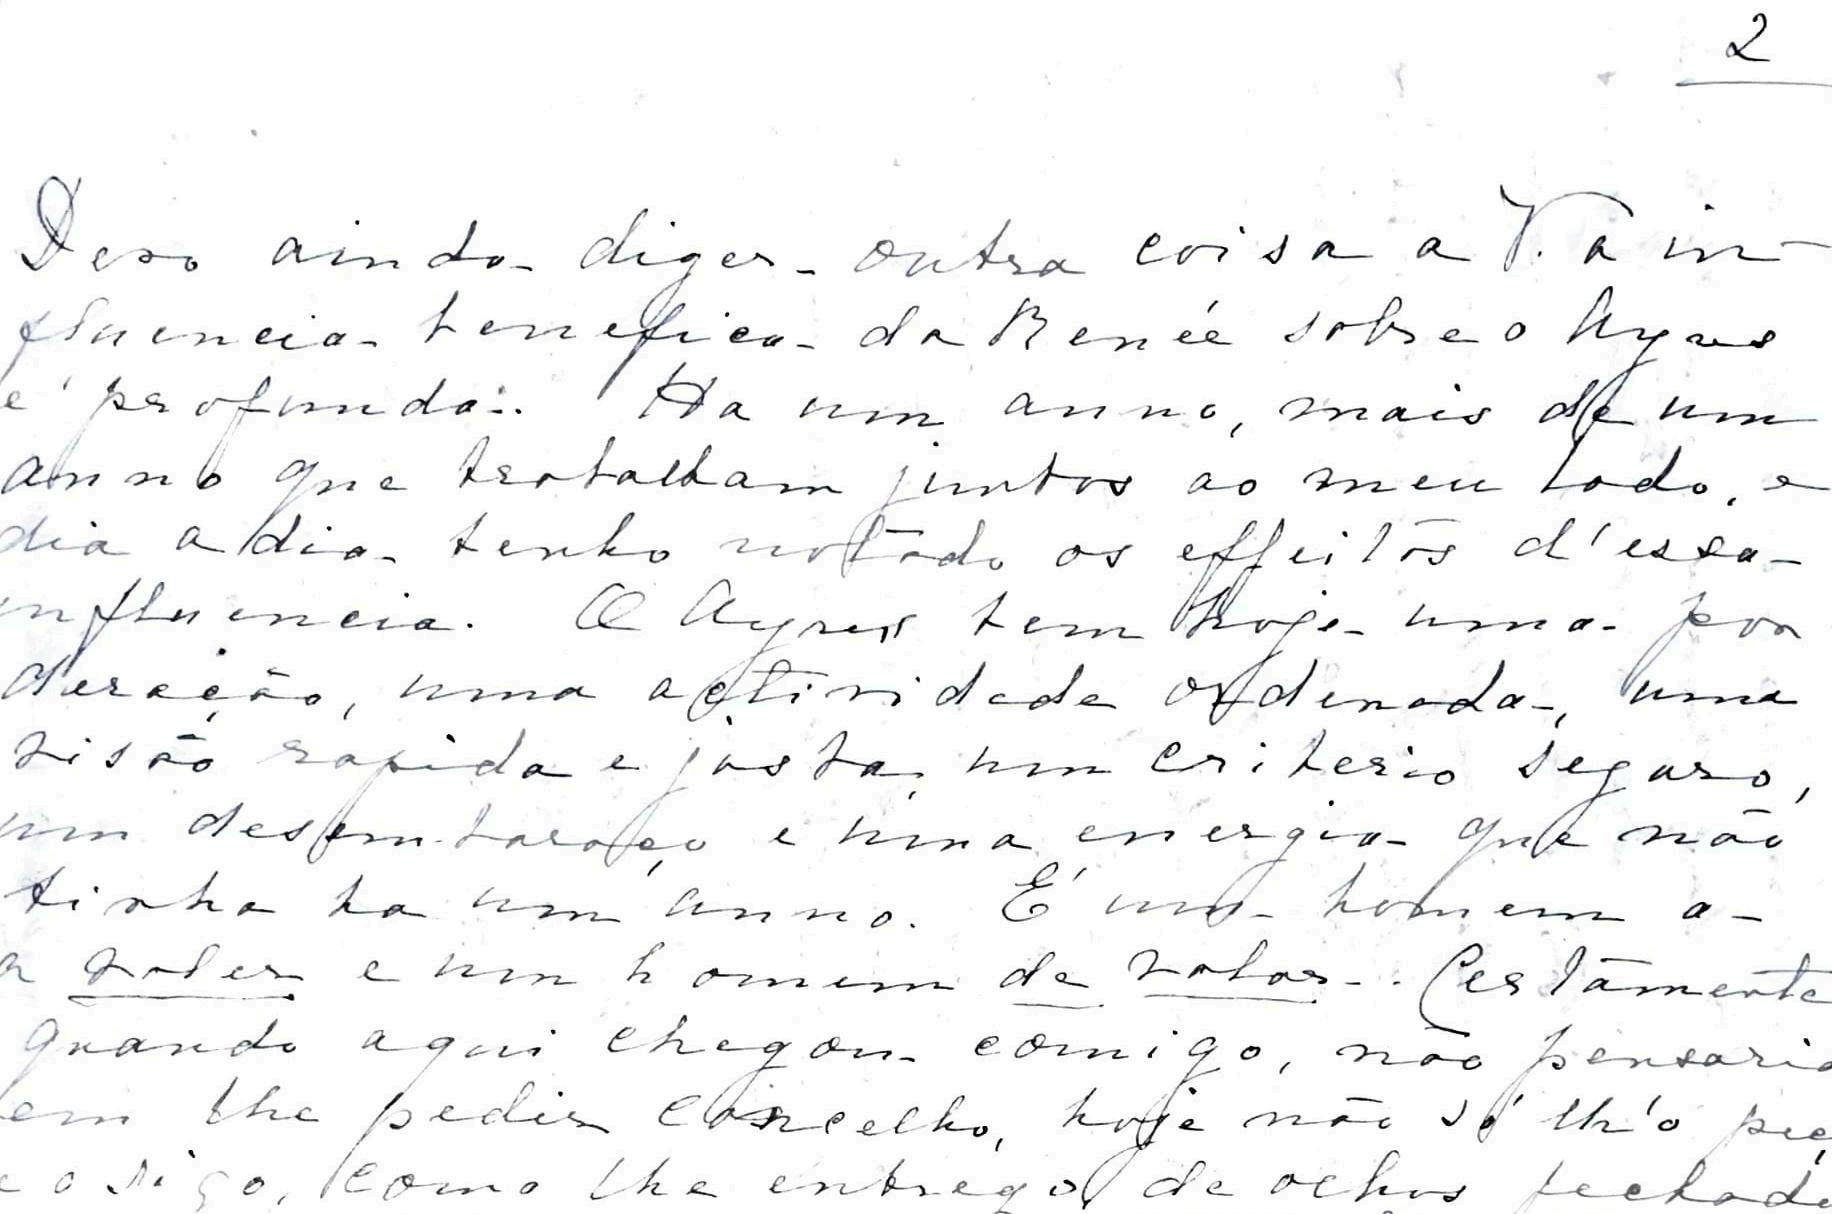 2
Devo ainda dizer outra coisa a V. a in-
fluencia benefica da Renée sobre o Ayres
é profunda. Ha um anno, mais de um
anno que trabalham juntos ao meu lado, e
dia a dia tenho notado os effeitos d'essa
influencia. O Ayres tem hoje uma pon
deração, uma actividade ordenada, uma
visão rapida e justa, um criterio seguro,
um desembaraço e uma energia que não
tinha ha um anno. É um homem a
valer e um homem de valor. Certamente
quando aqui chegou comigo, não pensaria
em lhe pedir concelho, hoje não só lh'o peç
e o sigo, como lhe entrego de olhos fechado